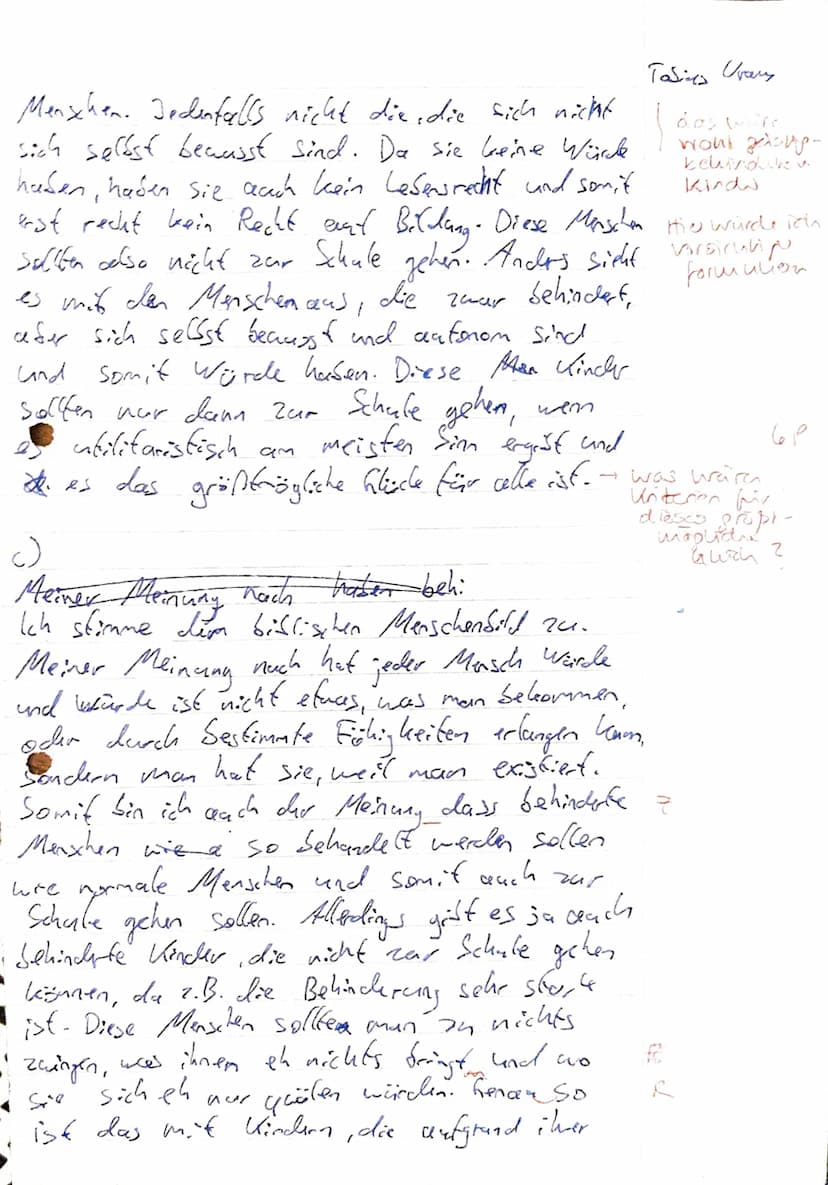 Tobias
Menschen. Jedenfalls nicht die, die sich nicht
sich selbst bewusst sind. Da sie keine Würde
haben, haben sie auch kein Lebensrecht und somit
erst recht kein Recht auf Bildung. Diese Menschen
sollten also nicht zur Schule gehen. Anders sieht
es mit den Menschen aus, die zwar behindert,
aber sich selbst bewusst und autonom sind
und somit Würde haben. Diese Men Kinder
sollten nur dann zur Schule gehen, wenn
es utilitaristisch am meisten Sinn ergibt und
es das größtmögliche Glück für alle ist.
das wäre
wohl geistig-
behinderten
Kinder
Hier würde ich
vorsichtiger
formulieren
6P
→ was wären
Kriterien für
dieses größt-
mögliche
Glück?
c)
Meiner Meinung nach haben beh.
Ich stimme dem biblischen Menschenbild zu.
Meiner Meinung nach hat jeder Mensch Würde
und Würde ist nicht etwas, was man bekommen,
oder durch bestimmte Fähigkeiten erlangen kann,
sondern man hat sie, weil man existiert.
Somit bin ich auch der Meinung dass behinderte
Menschen wie so behandelt werden sollen
wie normale Menschen und somit auch zur
Schule gehen sollen. Allerdings gibt es ja auch
behinderte Kinder, die nicht zur Schule gehen
können, da z.B. die Behinderung sehr stark
ist. Diese Menschen sollte man zu nichts
zwingen, was ihnen eh nichts bringt und wo
sie sich eh nur quälen würden. Genau so
R
ist das mit Kindern, die aufgrund ihrer